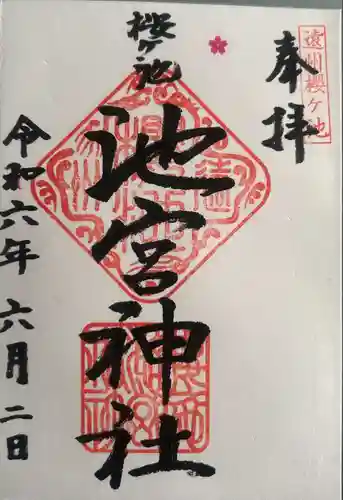 遠州櫻ヶ池
奉拝
櫻ヶ池
池宮神社
令和六年六月二日